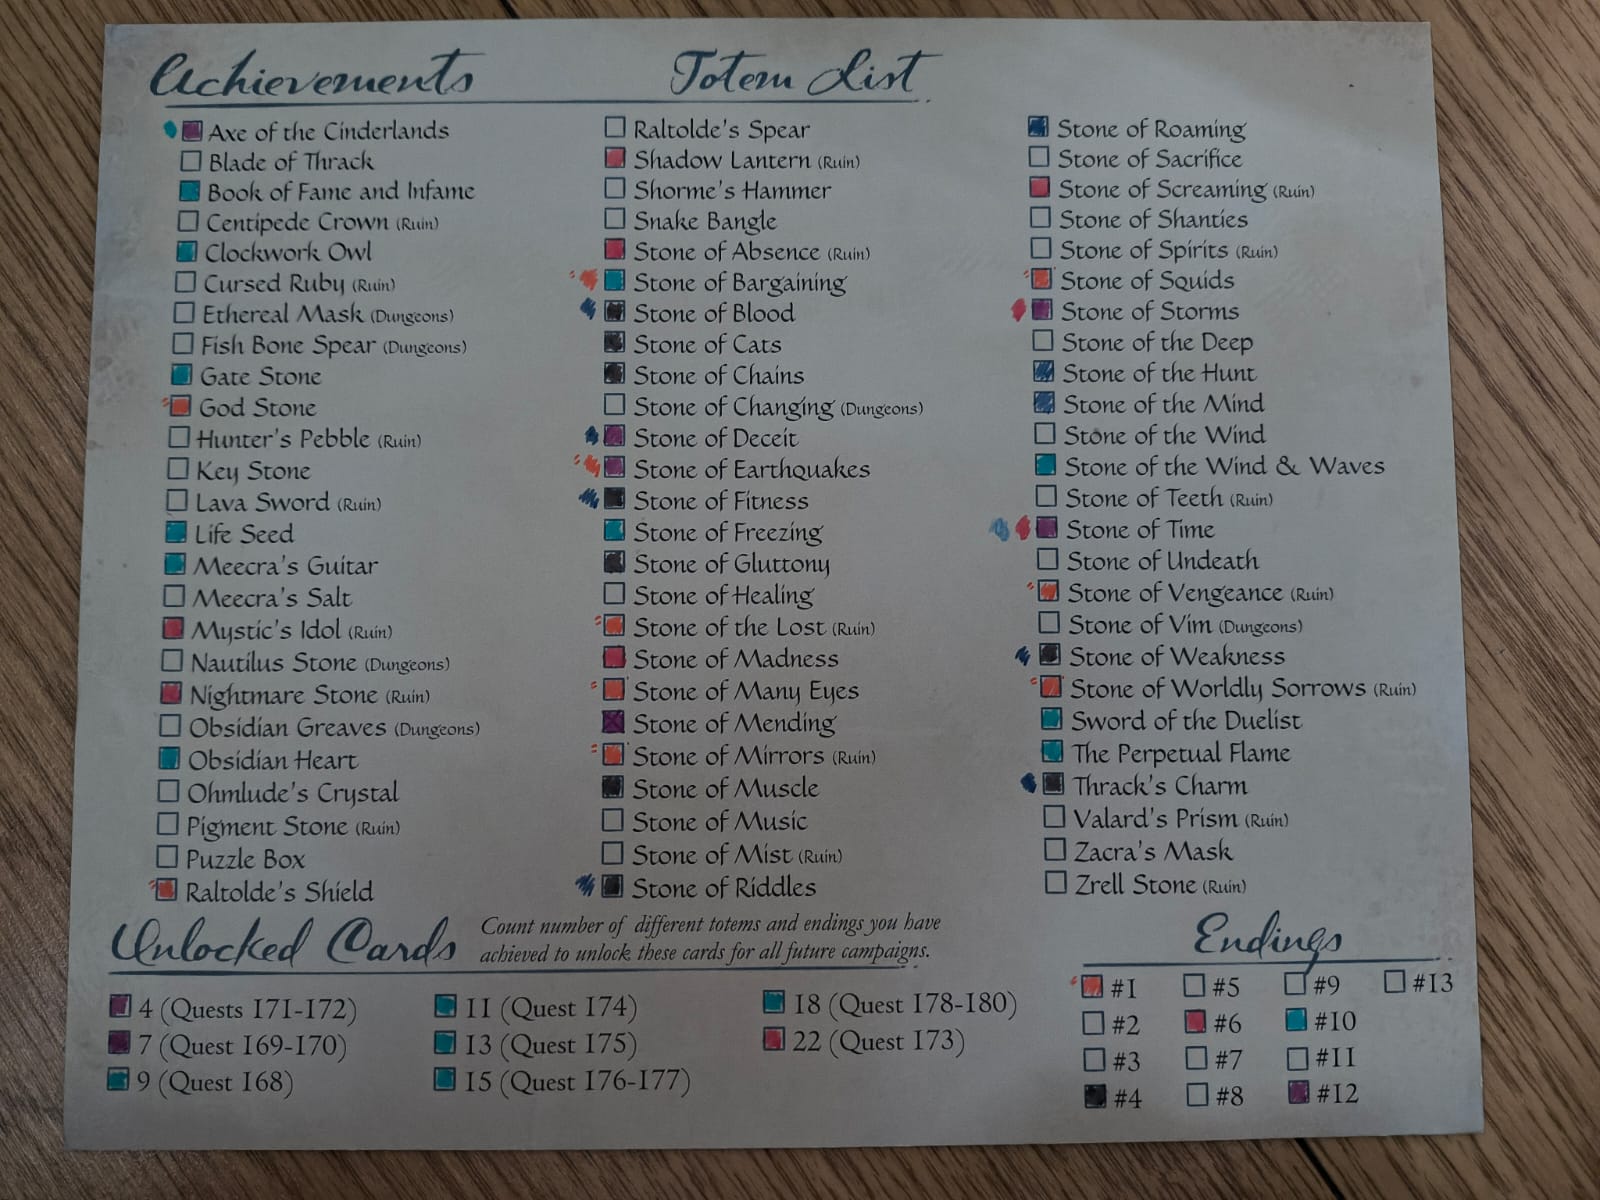 Achievements
Totem List
Axe of the Cinderlands
Blade of Thrack
Book of Fame and Infame
Centipede Crown (Ruin)
Clockwork Owl
Cursed Ruby (Ruin)
Ethereal Mask (Dungeons)
Fish Bone Spear (Dungeons)
Gate Stone
God Stone
Hunter's Pebble (Ruin)
Key Stone
Lava Sword (Ruin)
Life Seed
Meecra's Guitar
Meecra's Salt
Mystic's Idol (Ruin)
Nautilus Stone (Dungeons)
Nightmare Stone (Ruin)
Obsidian Greaves (Dungeons)
Obsidian Heart
Ohmlude's Crystal
Pigment Stone (Ruin)
Puzzle Box
Raltolde's Shield
Raltolde's Spear
Shadow Lantern (Ruin)
Shorme's Hammer
Snake Bangle
Stone of Absence (Ruin)
Stone of Bargaining
Stone of Blood
Stone of Cats
Stone of Chains
Stone of Changing (Dungeons)
Stone of Deceit
Stone of Earthquakes
Stone of Fitness
Stone of Freezing
Stone of Gluttony
Stone of Healing
Stone of the Lost (Ruin)
Stone of Madness
Stone of Many Eyes
Stone of Mending
Stone of Mirrors (Ruin)
Stone of Muscle
Stone of Music
Stone of Mist (Ruin)
Stone of Riddles
Stone of Roaming
Stone of Sacrifice
Stone of Screaming (Ruin)
Stone of Shanties
Stone of Spirits (Ruin)
Stone of Squids
Stone of Storms
Stone of the Deep
Stone of the Hunt
Stone of the Mind
Stone of the Wind
Stone of the Wind & Waves
Stone of Teeth (Ruin)
Stone of Time
Stone of Undeath
Stone of Vengeance (Ruin)
Stone of Vim (Dungeons)
Stone of Weakness
Stone of Worldly Sorrows (Ruin)
Sword of the Duelist
The Perpetual Flame
Thrack's Charm
Valard's Prism (Ruin)
Zacra's Mask
Zrell Stone (Ruin)
Unlocked Cards
Count number of different totems and endings you have
achieved to unlock these cards for all future campaigns.
4 (Quests 171-172)
7 (Quest 169-170)
9 (Quest 168)
11 (Quest 174)
13 (Quest 175)
15 (Quest 176-177)
18 (Quest 178-180)
22 (Quest 173)
Endings
#1
#2
#3
#4
#5
#6
#7
#8
#9
#10
#11
#12
#13